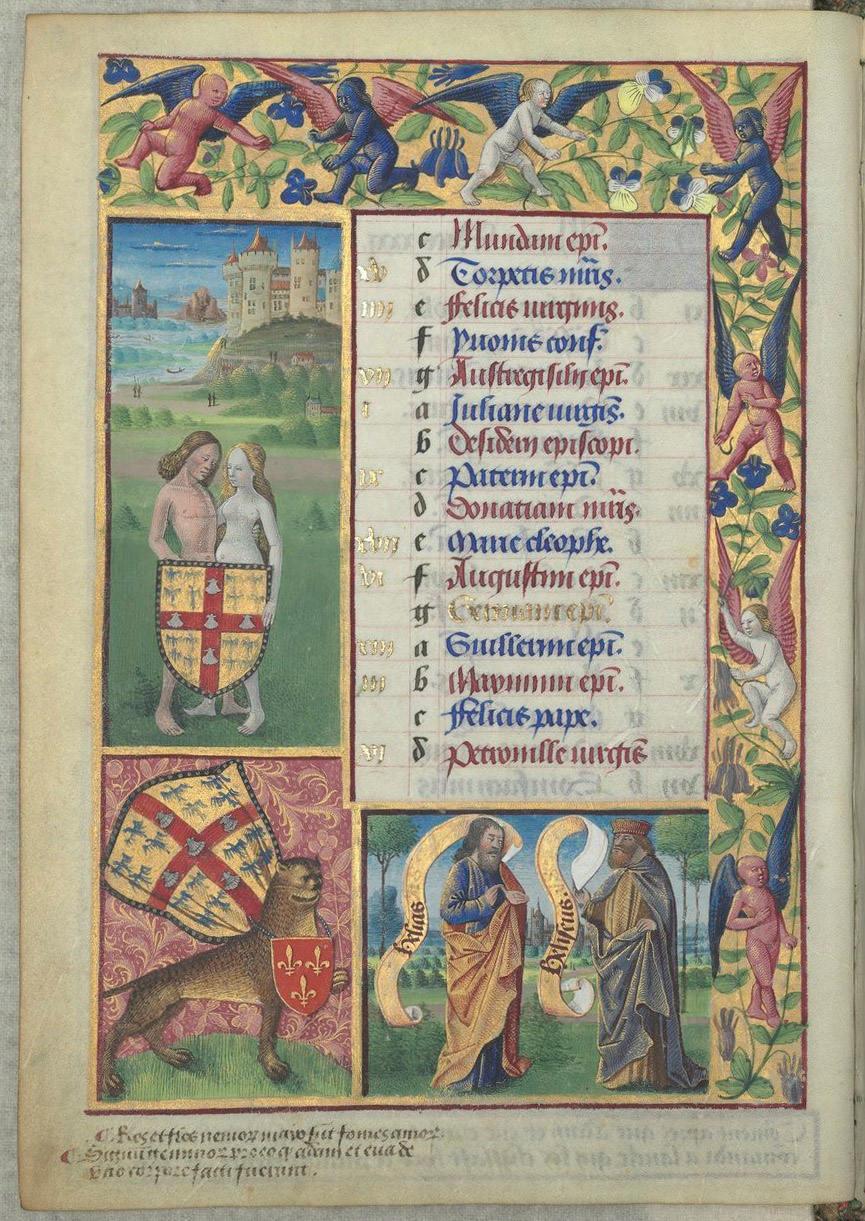 c Mundani epi.
xv d Torpetis mris.
iiii e ffelicis uirginis.
f Yuonis conf.
xii g Austregisilii epi.
i a Juliane uirgis.
b Desiderii episcopi.
ix c Paterni epi.
d Donatiani mris
xvii e Marie cleophe.
vi f Augustini epi.
g Germani epi.
xiiii a Guillermi epi.
iii b Maximini epi.
c ffelicis pape.
xi d Petronille uirgis
helias
heliseus.
Ros et flos nemorum mayo sunt fomes amorum.
adam et eua de
uno corpore facti fuerunt.